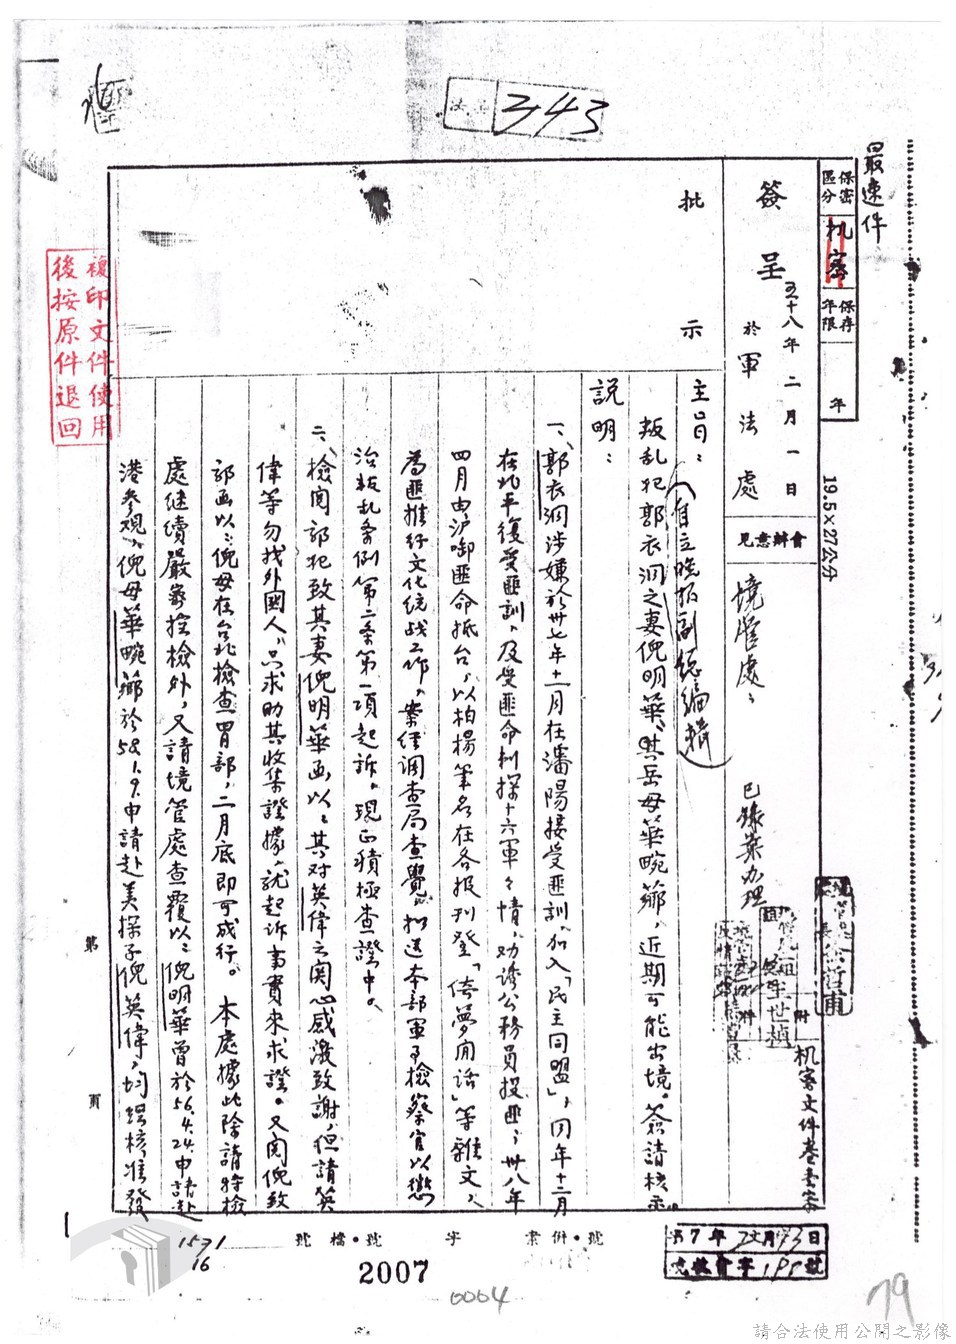 最速件
保密區分
机密
保存年限
年
19.5×27公分
簽呈
五十八年二月一日
於軍法處
會辦意見
境管處：
已錄案办理
附件
机密文件卷書案
批示
主旨：(自立晚报副總編輯)
叛乱犯郭衣洞之妻倪明華、其岳母華畹薌，近期可能出境。簽請核示。
說明：
一、郭衣洞涉嫌於卅七年十一月在瀋陽接受匪訓，加入「民主同盟」，同年十二月
在北平復受匪訓，及受匪命刺探十六軍々情，劝誘公務員投匪；卅八年
四月由沪啣匪命抵台，以柏楊筆名在各报刊登「倚夢閒話」等雜文，
為匪推行文化统战工作，案經调查局查覺，扒送本部軍事檢察官以懲
治叛乱条例第二条第一項起訴。現正積極查證中。
二、檢閱郭犯致其妻倪明華函，以：其对英偉之関心感激致謝，但請英
偉等勿找外國人，只求助其收集證據，就起訴事實來求證。又閱倪致
郭函以：倪母在台北檢查胃部，二月底即可成行。本處據此除請特檢
處继續嚴密控檢外，又請境管處查覆以：倪明華曾於56.4.24.申請赴
港参观，倪母華畹薌於58.1.9.申請赴美探子倪英偉，均經核准發
第 頁
複印文件使用
後按原件退回
243
號 檔・號 字 案・附 號
1571
16
2007
0004
79
請合法使用公開之影像